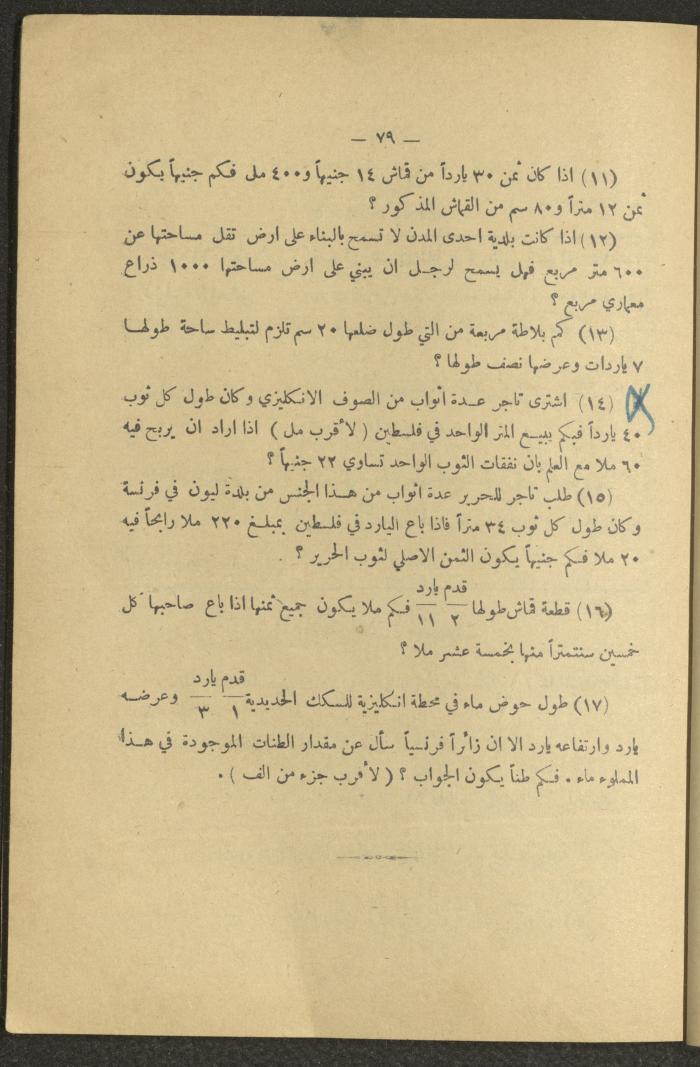 — ٧٩ —
(١١) اذا كان ثمن ٣٠ يارداً من قماش ١٤ جنيهاً و٤٠٠ مل فكم جنيهاً يكون
ثمن ١٢ متراً و٨٠ سم من القماش المذكور ؟
(١٢) اذا كانت بلدية احدى المدن لا تسمح بالبناء على ارض تقل مساحتها عن
٦٠٠ متر مربع فهل يسمح لرجل ان يبني على ارض مساحتها ١٠٠٠ ذراع
معماري مربع ؟
(١٣) كم بلاطة مربعة من التي طول ضلعها ٢٠ سم تلزم لتبليط ساحة طولها
٧ ياردات وعرضها نصف طولها ؟
(١٤) اشترى تاجر عدة اثواب من الصوف الانكليزي وكان طول كل ثوب
٤٠ يارداً فبكم يبيع المتر الواحد في فلسطين ( لأقرب مل ) اذا اراد ان يربح فيه
٦٠ ملا مع العلم بان نفقات الثوب الواحد تساوي ٢٢ جنيهاً ؟
(١٥) طلب تاجر للحرير عدة اثواب من هذا الجنس من بلدة ليون في فرنسة
وكان طول كل ثوب ٣٤ متراً فاذا باع اليارد في فلسطين بمبلغ ٢٢٠ ملا رابحاً فيه
٢٠ ملا فكم جنيهاً يكون الثمن الاصلي لثوب الحرير ؟
قدم يارد
(١٦) قطعة قماش طولها ٢ ١١ فكم ملا يكون جميع ثمنها اذا باع صاحبها كل
خمسين سنتمتراً منها بخمسة عشر ملا ؟
قدم يارد
(١٧) طول حوض ماء في محطة انكليزية للسكك الحديدية ١ ٣ وعرضه
يارد وارتفاعه يارد الا ان زائراً فرنسياً سأل عن مقدار الطنات الموجودة في هذا
المملوء ماء . فكم طناً يكون الجواب ؟ ( لأقرب جزء من الف ) .